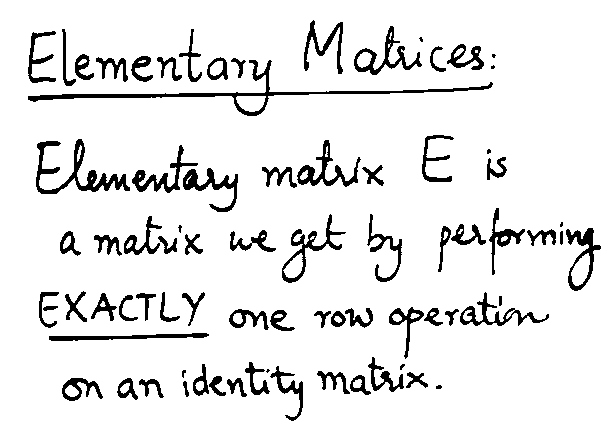 Elementary Matrices:
Elementary matrix E is
a matrix we get by performing
EXACTLY one row operation
on an identity matrix.